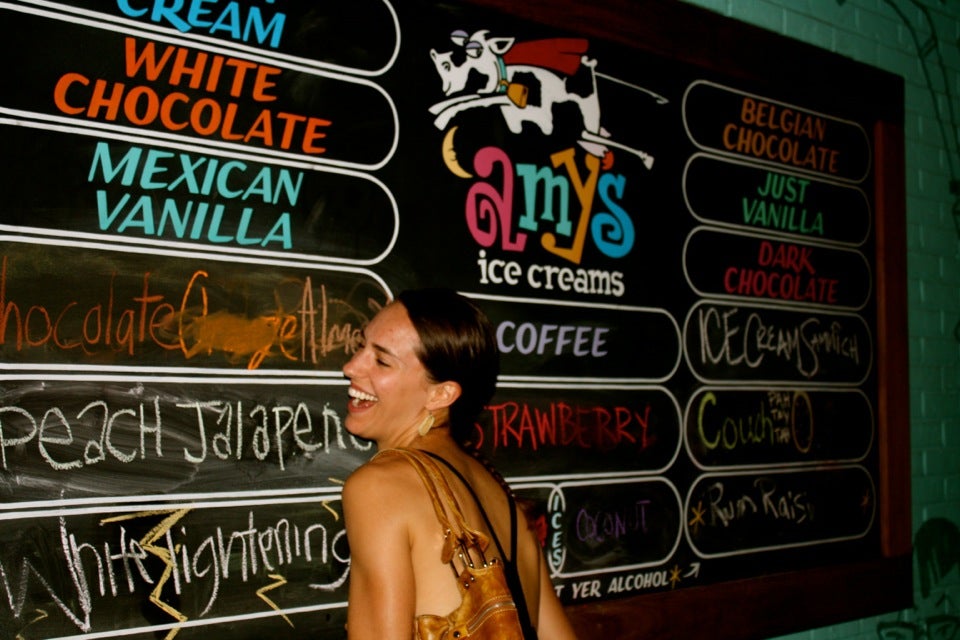 CREAM
WHITE
CHOCOLATE
MEXICAN
VANILLA
hocolate Orange Alm
Peach Jalapeno
White Lightening
amy's
ice creams
COFFEE
STRAWBERRY
ICES
COCONUT
T YER ALCOHOL
BELGIAN
CHOCOLATE
JUST
VANILLA
DARK
CHOCOLATE
ICE CREAM SANWICH
Couch
PAH
TAY
TAU
O
Rum Raisi